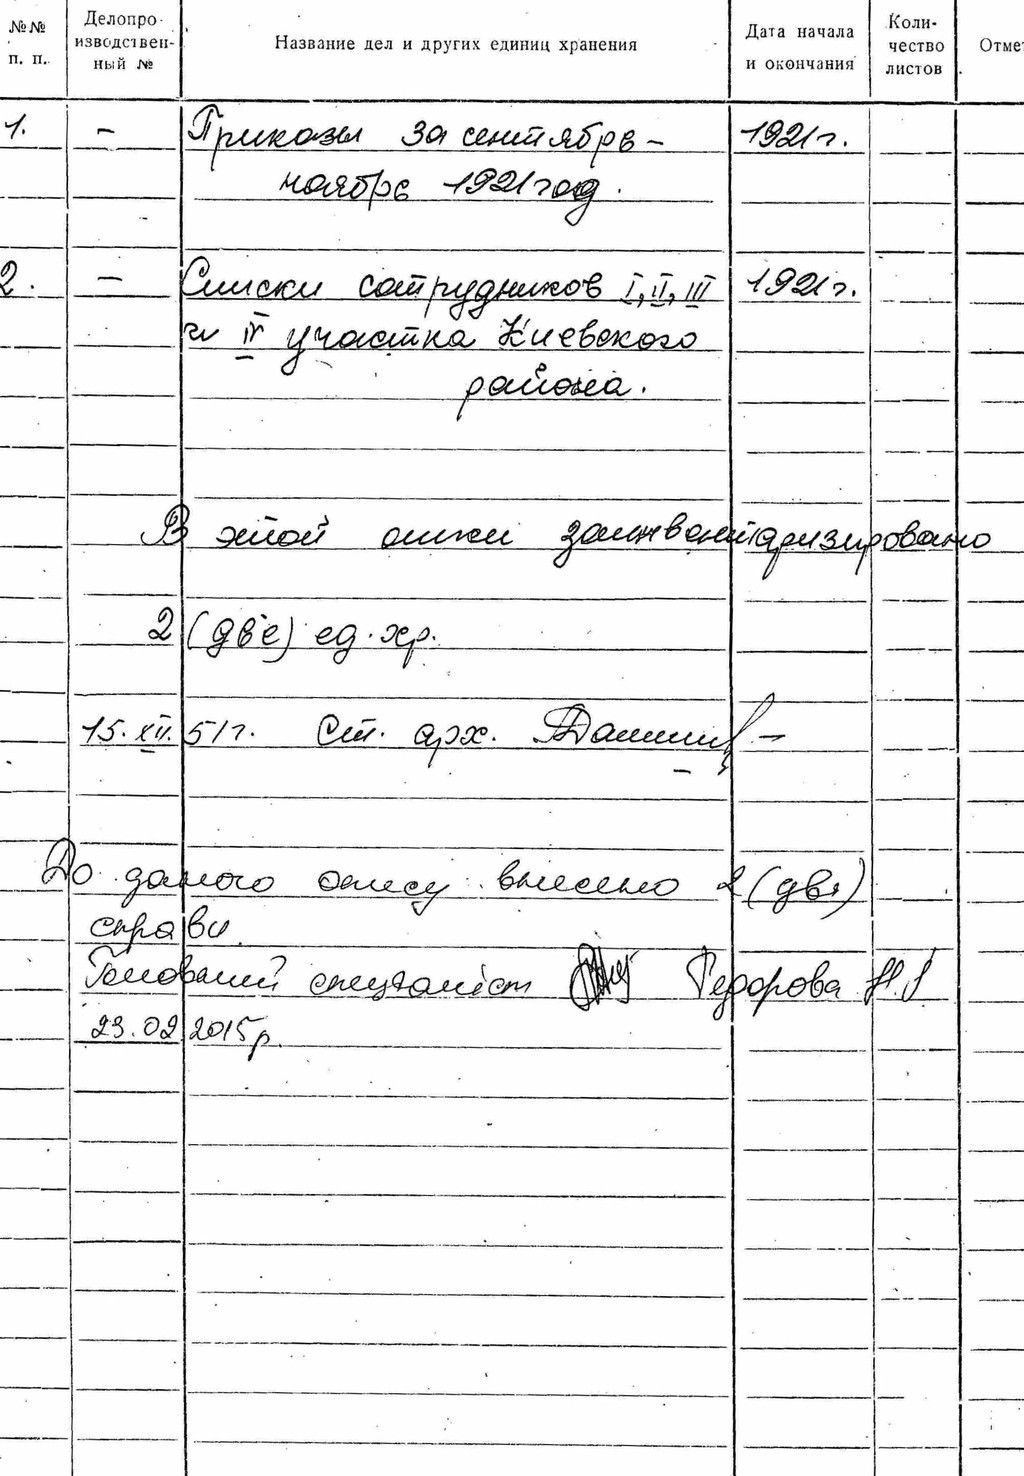 №№ п. п.
Делопро-
изводствен-
ный №
Название дел и других единиц хранения
Дата начала
и окончания
Коли-
чество
листов
Отме
1. – Приказы за сентябрь – 1921 г.
ноябрь 1921 год.
2. – Списки сотрудников I, II, III 1921 г.
и IV участка Киевского
района.
В этой описи заинвентаризировано
2 (две) ед. хр.
15. XII. 51 г. Ст. арх.
До даного опису внесено 2 (дві)
справи
Головний спеціаліст Федорова Н.
23.02 2015 р.